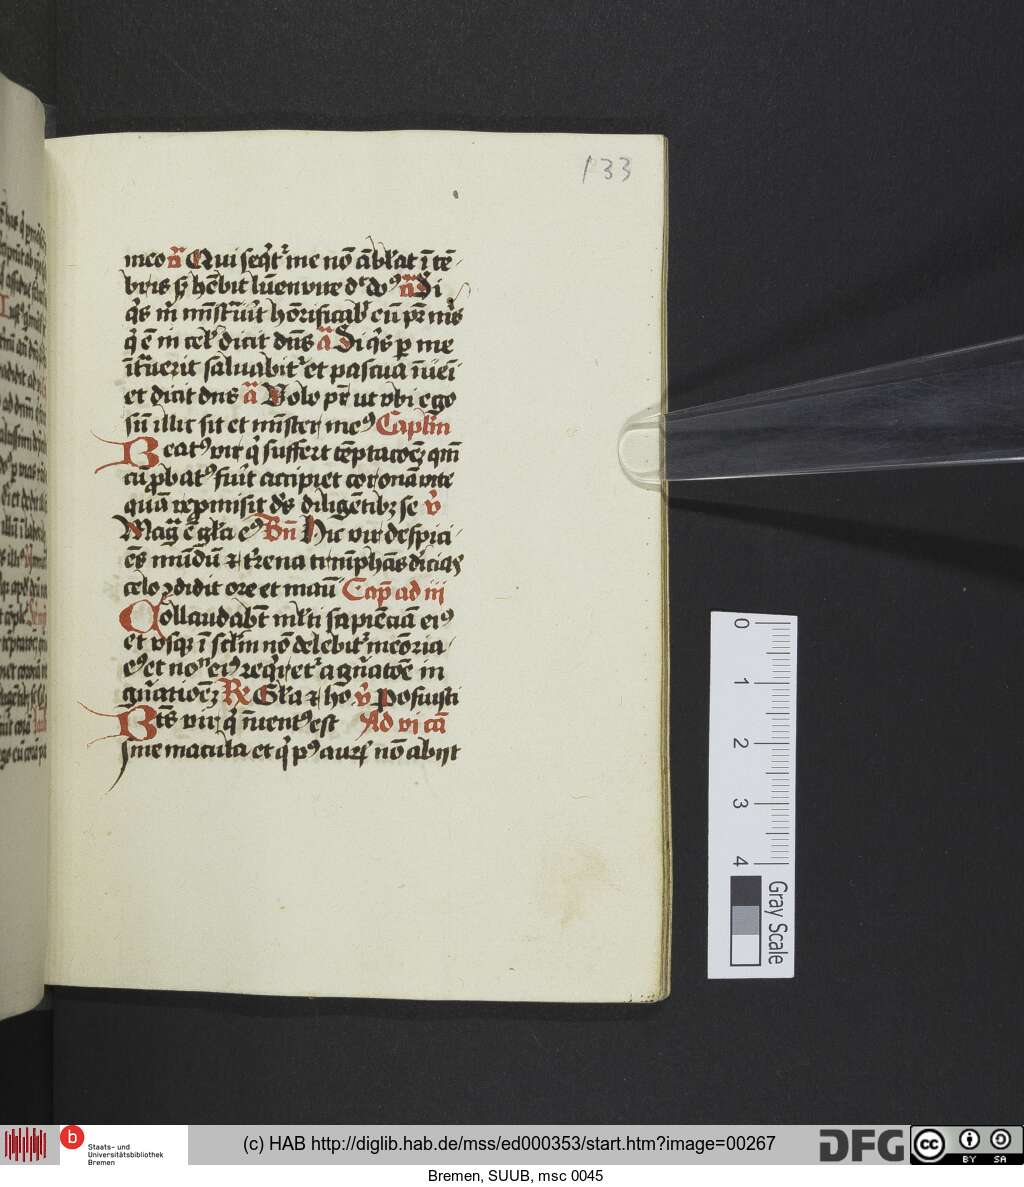 133
meo a͞ Qui seq̇tʳ me nō ābl̵at ī tē
bris sꝫ hēbit lūen vite dᵗ dn͞s a͞ Si
q̇s m̄ mīstʳūit hōrificabᵗ eū pr̄ m̄s
q̇ ē in cel̵ dicit dn͞s a͞ Si q̇s p me
ītʳuerit saluabitʳ et pascua īueīet
et dicit dn͞s a͞ Volo pr̄ ut vbi ego
sū illic sit et mīster meꝰ Caplm̄
Beatꝰ vir q̇ suffert tēptacōeꝫ qm̄
cū ꝓbatꝰ fūit accipiet coronā vite
quā repromisit dē͞s diligētibꝫ se v̇
Mag̅ ē gl̅a eꝰ Bn̄ Hic vir despici
ēs mūdū ⁊ tʳrena triūphās diciās
celo ꝯdidit ore et manū Cap̅ ad iii
Collaudabt̅ ml̅ti sapiēciā eiꝰ
et vsqꝫ ī sclm̄ nō delebitʳ meōria
eꝰ et nōᵉⁿ eiꝰ reqˢretʳ a gn̄atōe in
gn̄atioēꝫ Re Gl̅a ⁊ hō v̇ Posuisti
Bt̅s vir q̇ īuentꝰ est Ad vi ca͞
sine macula et q̇ pꝰ aurū nō abijt
0
1
2
3
4
Gray Scale
b
Staats- und
Universitätsbibliothek
Bremen
(c) HAB http://diglib.hab.de/mss/ed000353/start.htm?image=00267
DFG
cc
BY SA
Bremen, SUUB, msc 0045